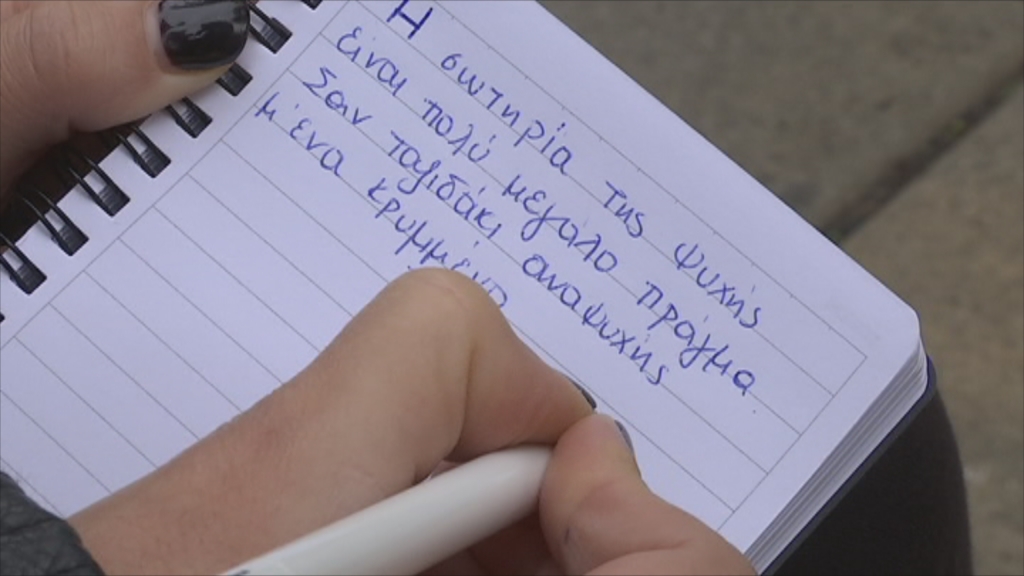 Η σωτηρία της ψυχής
είναι πολύ μεγάλο πράγμα.
Σαν ταξιδάκι αναψυχής
μ' ένα κρυμμένο